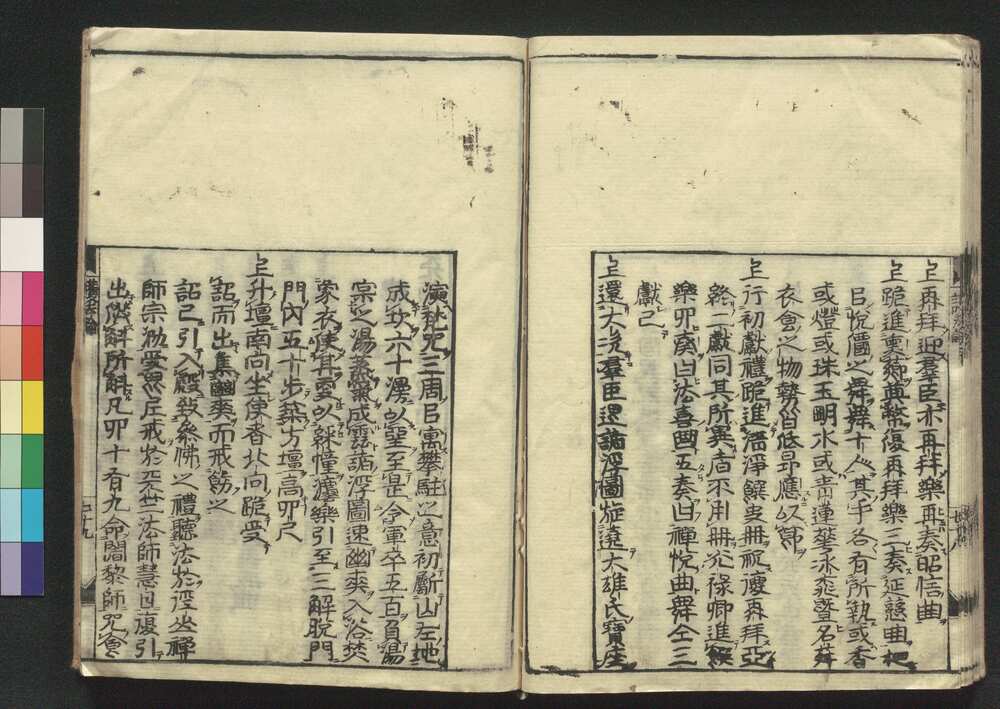 上再拜迎羣臣亦再拜樂再奏昭信曲
上跪進熏薌奠幣復再拜樂三奏延慈曲相
以悅佛之舞舞十人其手各有所執或香
或燈或珠玉明水或青蓮華冰桃暨名荈
衣食之物勢皆低昂應以節
上行初獻禮跪進清淨饌史冊祝復再拜亞
終二獻同其所異者不用冊光祿卿進饌
樂四奏曰法喜曲五奏曰禪悅曲舞仝三
獻已
上還大次羣臣退諸浮圖旋遶大雄氏寶座
演梵咒三周以寓攀駐之意初斸山左地
成坎六十漫以堊至是令軍卒五百負湯
實之湯蒸氣成雲諸浮圖速幽爽入浴焚
象衣使其更以綵幢瀍樂引至三解脫門
門內五十步築方壇高四尺
上升壇南向坐使者北向跪受
詔而出集幽爽而戒飭之
詔已引入殿致參佛之禮聽法於徑山禪
師宗泐受毗尼戒於天竺法師慧日復引
出供斛所斛凡四十有九命闍黎師咒食